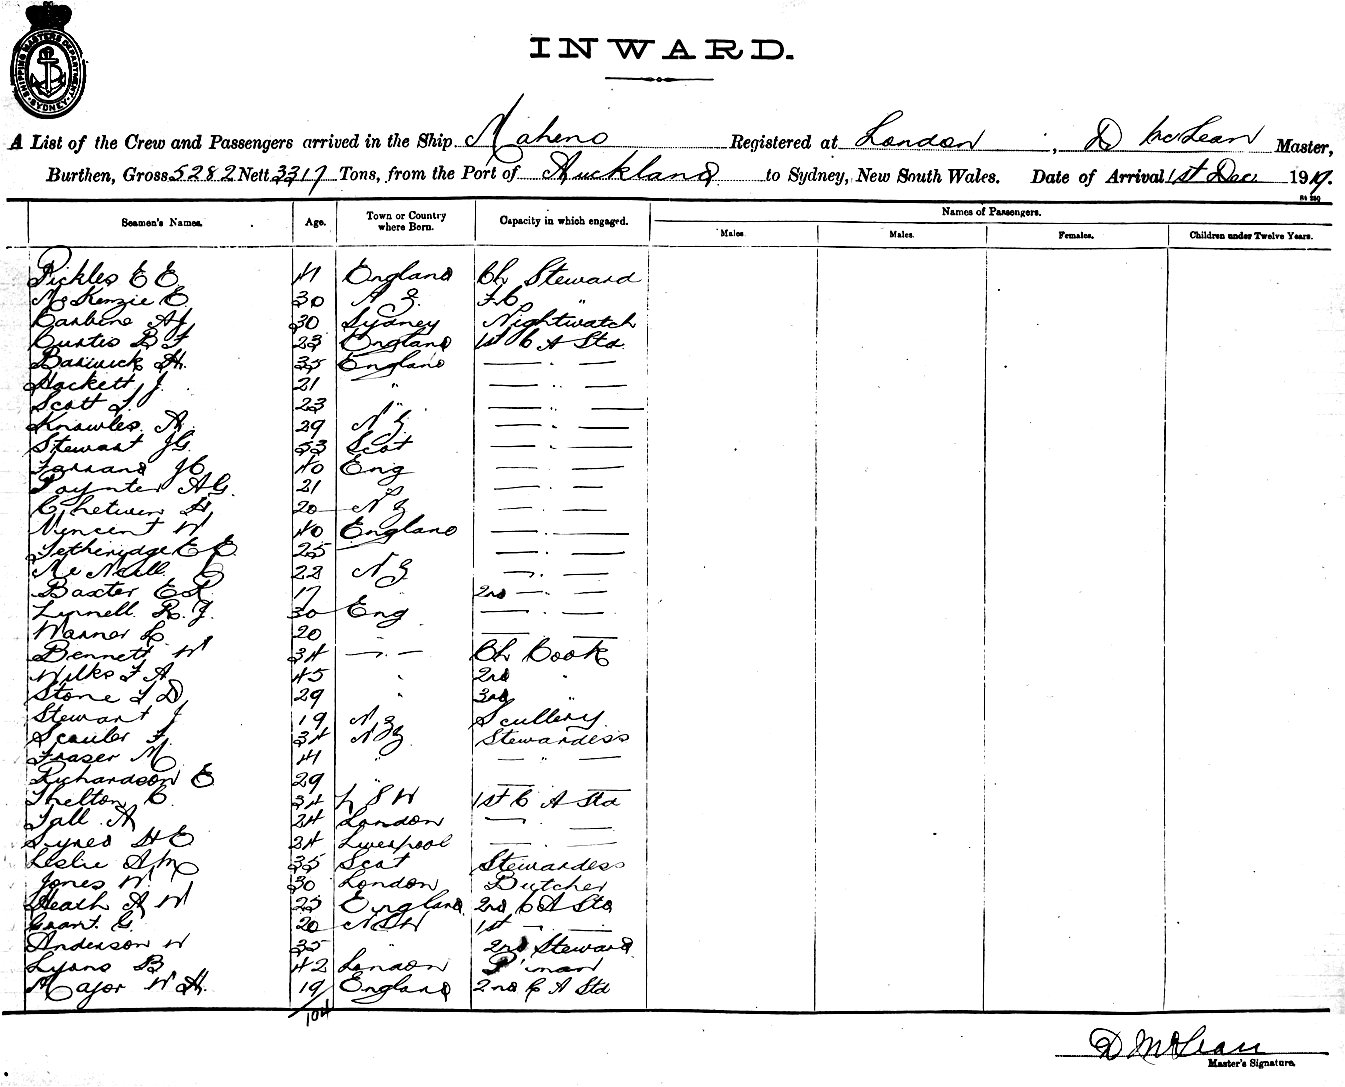 SHIPPING MASTERS DEPARTMENT
SYDNEY
INWARD.
A List of the Crew and Passengers arrived in the Ship Maheno Registered at London, D McLean Master,
Burthen, Gross 5282 Nett 3317 Tons, from the Port of Auckland to Sydney, New South Wales. Date of Arrival 1st Dec 1917.
Names of Passengers.
Seamen's Names. Age. Town or Country where Born. Capacity in which engaged. Males. Males. Females. Children under Twelve Years.
Pickles E E 41 England Ch Steward
McKenzie E 30 N Z F C "
Carbine A J 30 Sydney Nightwatch
Curtis B F 23 England 1st C A Std
Barwick H. 35 England — " —
Hackett J. 21 " — " —
Scott 23 " — " —
Knowles A. 29 N Z — " —
Stewart J G. 53 Scot — " —
Farrand J C 40 Eng — " —
Poynter A G. 21 " — " —
Chetwin H 20 N Z — " —
Vincent W 40 England — " —
Tetheridge E E 25 — " —
McNeill C 22 N Z — " —
Baxter E R 17 2nd — " —
Lynnell R. J. 30 Eng — " —
Warner L. 20 — —
Bennett W 34 — " — Ch Cook
Wilks F A 45 " 2nd "
Stone F D 29 " 3rd "
Stewart J 19 N Z Scullery
Scouler F. 34 N Z Stewardess
Fraser M 41 " — " —
Richardson E 29 " — —
Thelton C 34 N S W 1st C A Std
Tall A 24 London — —
Synes H E 24 Liverpool — " —
Leslie A M 35 Scot Stewardess
Jones W. 30 London Butcher
Heath A W 25 England 2nd C A Std
Grant G. 20 N S W 1st — " —
Anderson W 35 " 2nd Steward
Lyons B 42 London P'man
Major W H. 19 England 2nd C A Std
104
D McLean
Master's Signature.